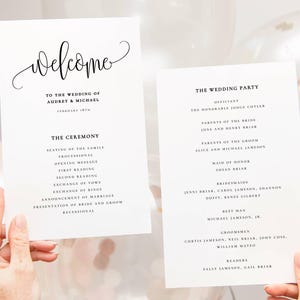 welcome
TO THE WEDDING OF
AUDREY & MICHAEL
FEBRUARY 18TH
THE CEREMONY
SEATING OF THE FAMILY
PROCESSIONAL
OPENING MESSAGE
FIRST READING
SECOND READING
EXCHANGE OF VOWS
EXCHANGE OF RINGS
ANNOUNCEMENT OF MARRIAGE
PRESENTATION OF BRIDE AND GROOM
RECESSIONAL
THE WEDDING PARTY
OFFICIANT
THE HONORABLE JUDGE CUTLER
PARENTS OF THE BRIDE
JOHN AND HENRY BRIAR
PARENTS OF THE GROOM
ALICE AND MICHAEL JAMESON
MAID OF HONOR
HELEN BRIAR
BRIDESMAIDS
JENNY BRIAR, CAROL JAMESON, SHANNON
DUFFY, RENEE GILBERT
BEST MAN
MICHAEL JAMESON, JR.
GROOMSMAN
CURTIS JAMESON, NEIL BRIAR, JOHN COSE,
WILLIAM MATEO
READERS
SALLY JAMESON, GAIL BRIAR